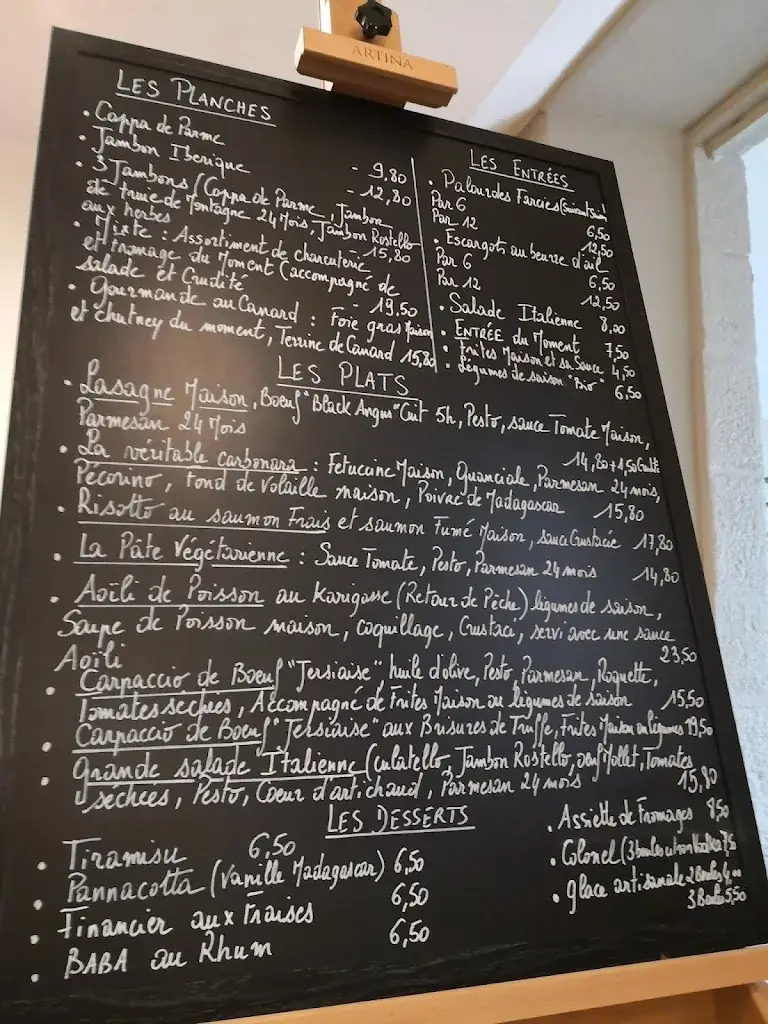 ARTINA
LES PLANCHES
• Coppa de Parme - 9,80
• Jambon Iberique - 12,80
• 3 Jambons (Coppa de Parme, Jambon
de truie de Montagne 24 Mois, Jambon Rostello
aux herbes 15,80
• Mixte : Assortiment de charcuterie
et fromage du Moment (accompagné de
salade et Crudité - 19,50
• Gourmande au Canard : Foie gras Maison
et chutney du moment, Terrine de Canard 15,80
LES ENTRÉES
• Palourdes Farcies
Par 6 6,50
Par 12 12,50
• Escargots au beurre d'ail
Par 6 6,50
Par 12 12,50
• Salade Italienne 8,00
• ENTRÉE du Moment 7,50
• Frites Maison et sa Sauce 4,50
• Légumes de saison "Bio" 6,50
LES PLATS
• Lasagne Maison, Boeuf "Black Angus" Cuit 5h, Pesto, sauce Tomate Maison,
Parmesan 24 Mois 14,80 + 1,50
• La véritable carbonara : Fetuccine Maison, Guanciale, Parmesan 24 mois,
Pécorino, fond de Volaille maison, Poivre de Madagascar 15,80
• Risotto au saumon Frais et saumon Fumé Maison, sauce Crustacée 17,80
• La Pâte Végétarienne : Sauce Tomate, Pesto, Parmesan 24 mois 14,80
• Aoïli de Poisson au Karigasse (Retour de Pêche) légumes de saison,
Soupe de Poisson maison, coquillage, Crustacé, servi avec une sauce
Aoïli 23,50
• Carpaccio de Boeuf "Jersiaise" huile d'olive, Pesto, Parmesan, Roquette,
Tomates séchées, Accompagné de Frites Maison ou légumes de saison 15,50
• Carpaccio de Boeuf "Jersiaise" aux Brisures de Truffe, Frites Maison ou légumes 19,50
• Grande salade Italienne (Culatello, Jambon Rostello, oeuf Mollet, Tomates
séchées, Pesto, Coeur d'artichaud, Parmesan 24 mois 15,80
LES DESSERTS
• Tiramisu 6,50
• Pannacotta (Vanille Madagascar) 6,50
• Financier aux Fraises 6,50
• BABA au Rhum 6,50
• Assiette de Fromages 8,50
• Colonel (3 boules citron Vodka
• glace artisanale 2 Boules 4,00
3 Boules 5,50